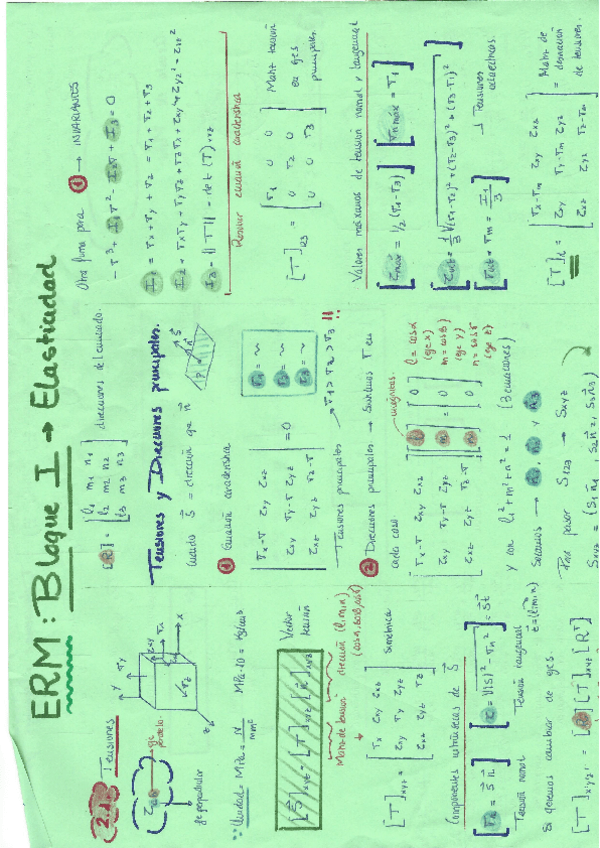 ERM: Bloque I → Elasticidad
2.1 Tensiones
eje perpendicular
eje paralelo
Unidad = MPa = N/mm²
MPa·10 = kg/cm²
[S]xyz = [T]xyz [n]xyz
Vector tensión
Matriz de tensión
dirección (l, m, n)
(cosα, cosβ, cosγ)
[T]xyz = [σx τxy τxz
τxy σy τyz
τxz τyz σz]
Simétrica
Componentes intrínsecas de S
Tensión normal
Tensión tangencial
Si queremos cambiar de ejes.
[T]x'y'z' = [R] [T]xyz [R^T]
[R] = [l1 m1 n1
l2 m2 n2
l3 m3 n3]
direcciones del
Tensiones y Direcciones principales.
Cuando S = dirección que n
1 Ecuación característica
|σx-σ τxy τxz
τxy σy-σ τyz
τxz τyz σz-σ| = 0
σ1 = ~
σ2 = ~
σ3 = ~
Tensiones principales → σ1 > σ2 > σ3 !!
2 Direcciones principales → Sustituimos σ en
cada caso.
[σx-σ τxy τxz
τxy σy-σ τyz
τxz τyz σz-σ] [l m n] = [0 0 0]
incógnitas.
l = cosα
(eje x)
m = cosβ
(eje y)
n = cosγ
(eje z)
y con l²+m²+n² = 1 (3 ecuaciones)
Sacamos → n1, n2 y n3
Para pasar S123 → Sxyz
Sxyz = (S1n1, S2n2, S3n3)
Otra forma para 1 → INVARIANTES
-σ³ + I1σ² - I2σ + I3 = 0
I1 = σx + σy + σz = σ1 + σ2 + σ3
I2 = σxσy + σyσz + σzσx - τxy² - τyz² - τxz²
I3 = |T| = det (T)xyz
Resolver ecuación característica
[T]123 = [σ1 0 0
0 σ2 0
0 0 σ3]
Matriz tensión
en ejes
principales.
Valores máximos de tensión normal y tangencial
[τmáx = 1/2 (σ1-σ3)] [σnmáx = σ1]
[τoct = 1/3 √(σ1-σ2)² + (σ2-σ3)² + (σ3-σ1)²]
[σoct = σm = I1/3]
Tensiones
octaédricas.
σx-σm τxy τxz
τxy σy-σm τyz
τxz τyz σz-σm
Matriz de
desviación
de tensiones.